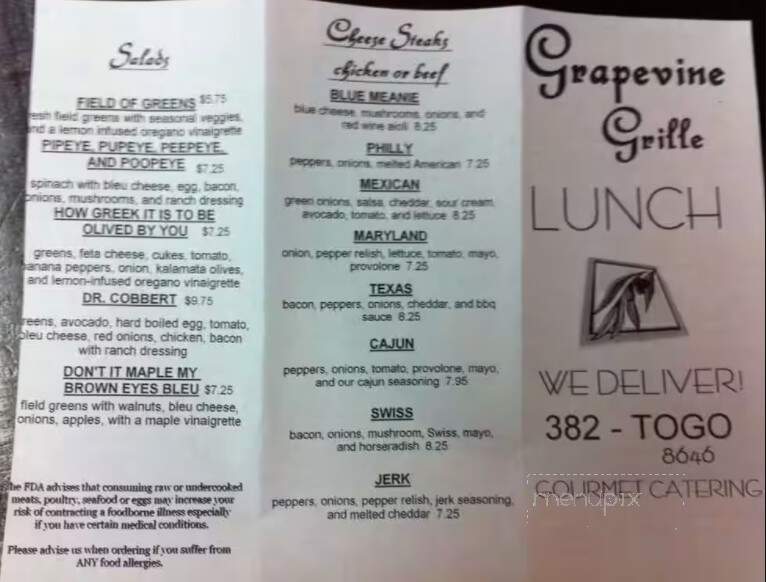 Salads
FIELD OF GREENS $5.75
resh field greens with seasonal veggies,
and a lemon infused oregano vinaigrette
PIPEYE, PUPEYE, PEEPEYE,
AND POOPEYE $7.25
spinach with bleu cheese, egg, bacon,
onions, mushrooms, and ranch dressing
HOW GREEK IT IS TO BE
OLIVED BY YOU $7.25
greens, feta cheese, cukes, tomato,
banana peppers, onion, kalamata olives,
and lemon-infused oregano vinaigrette
DR. COBBERT $9.75
reens, avocado, hard boiled egg, tomato,
bleu cheese, red onions, chicken, bacon
with ranch dressing
DON'T IT MAPLE MY
BROWN EYES BLEU $7.25
field greens with walnuts, bleu cheese,
onions, apples, with a maple vinaigrette
The FDA advises that consuming raw or undercooked
meats, poultry, seafood or eggs may increase your
risk of contracting a foodborne illness especially
if you have certain medical conditions.
Please advise us when ordering if you suffer from
ANY food allergies.
Cheese Steaks
chicken or beef
BLUE MEANIE
blue cheese, mushrooms, onions, and
red wine aioli 8.25
PHILLY
peppers, onions, melted American 7.25
MEXICAN
green onions, salsa, cheddar, sour cream,
avocado, tomato, and lettuce 8.25
MARYLAND
onion, pepper relish, lettuce, tomato, mayo,
provolone 7.25
TEXAS
bacon, peppers, onions, cheddar, and bbq
sauce 8.25
CAJUN
peppers, onions, tomato, provolone, mayo,
and our cajun seasoning 7.95
SWISS
bacon, onions, mushroom, Swiss, mayo,
and horseradish 8.25
JERK
peppers, onions, pepper relish, jerk seasoning,
and melted cheddar 7.25
Grapevine
Grille
LUNCH
WE DELIVER!
382 - TOGO
8646
GOURMET CATERING
menupix